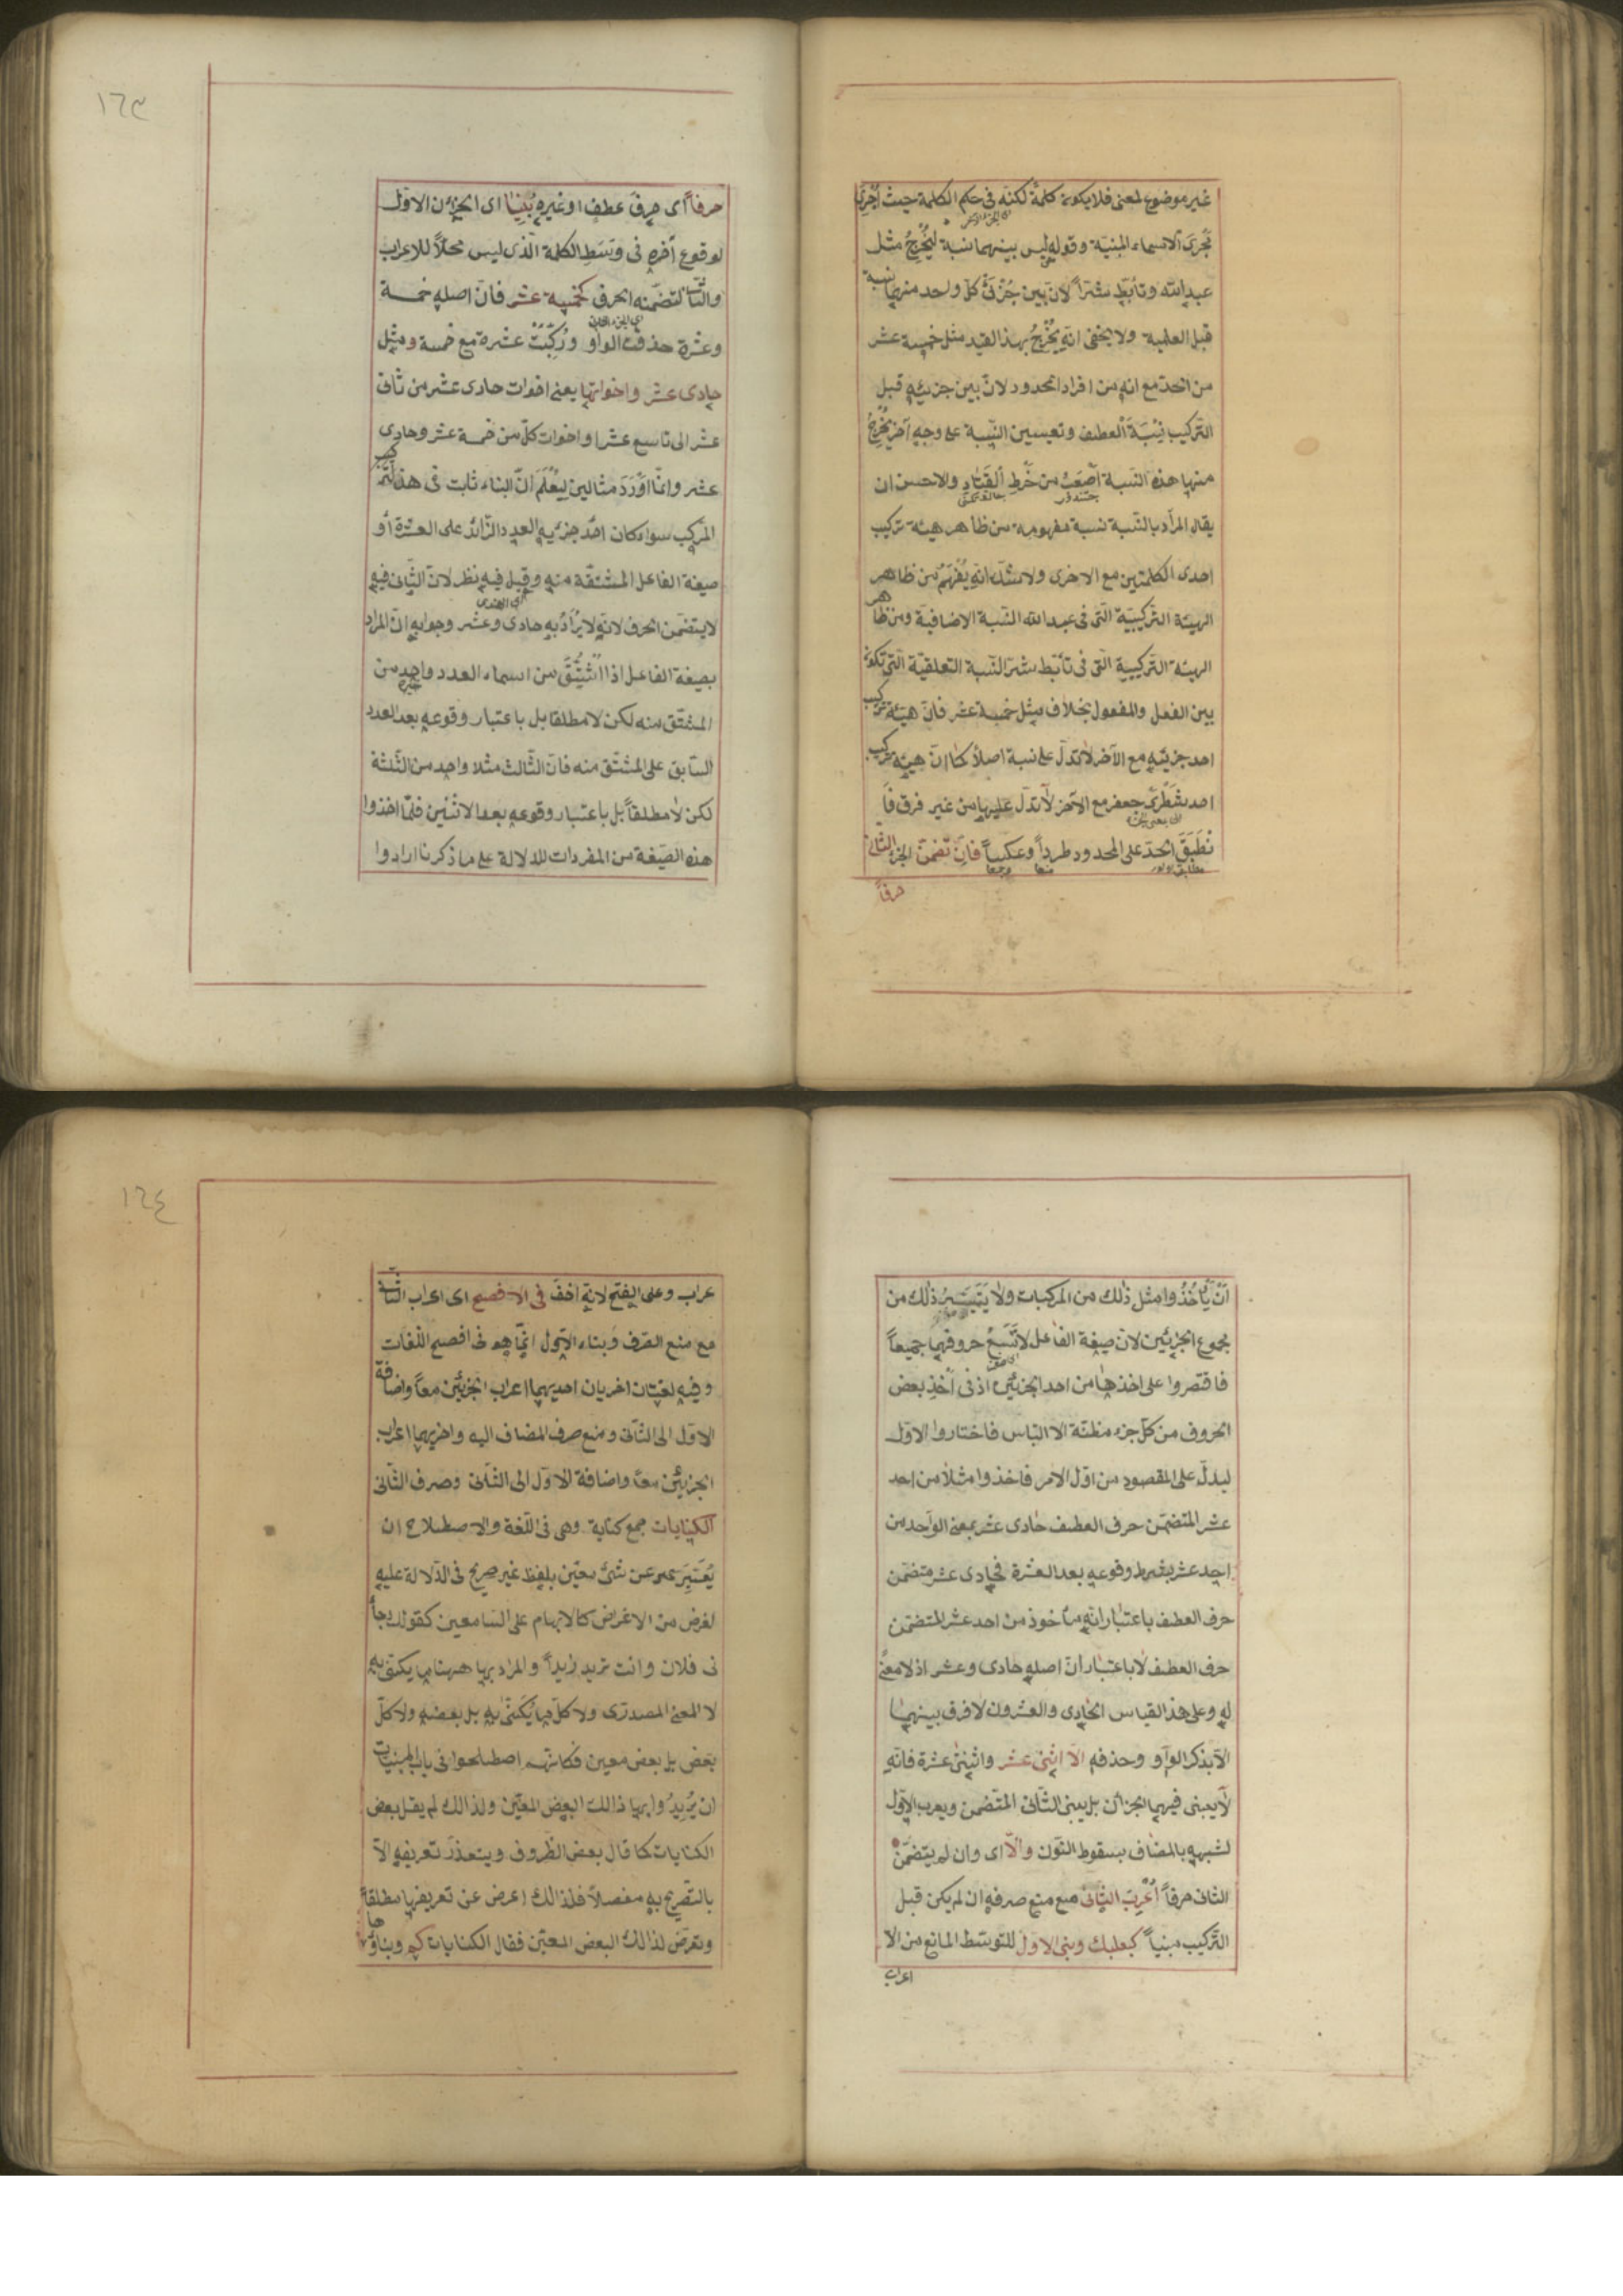 غير موضوع لمعنى فلا يكون كلمة لكنه فى حكم الكلمة حيث اُجْرِىَ
مُجرَى الاسماء المبنيّة وقوله ليس بينهما نسبة لِيُخْرِجَ مثل
عبد الله وتأبّط شرّاً لانّ بين جُزْئَىْ كلّ واحد منهما نسبة
قبل العلمية ولا يخفى انه يُخْرِجُ بهذا القيد مثل خمسة عشر
من الحدّ مع انه من افراد المحدود لانّ بين جزئيه قبل
التركيب نِسْبَةَ العطف وتعيين النّسبة على وجهٍ آخر يُخْرِجُ
منها هذه النّسبة اَصْعَبُ من خَرْطِ القَتَادِ والاحسن ان
يقال المراد بالنّسبة نسبة مفهومة من ظاهر هيئة تركيب
احدى الكلمتين مع الاخرى ولا شكّ انه يُفْهَمُ من ظاهر
الهيئة التّركيبيّة التى فى عبد الله النّسبة الاضافيّة ومن ظاهر
الهيئة التّركيبية التى فى تأبّط شرّا النّسبة التعلقيّة التى تكون
بين الفعل والمفعول بخلاف مثل خمسة عشر فانّ هيئة تركيب
احد جزئيه مع الآخر لا تدلّ على نسبة اصلاً كما انّ هيئة تركيب
احد شَطْرَىْ جعفر مع الآخر لا تدلّ عليها من غير فرق فا
نْطَبَقَ الحدّ على المحدود طرداً وعكساً فان تضمّن الجزء الثانى
حرفاً
١٦٣
حرفاً اى حرفَ عطفٍ او غيره بُنِيَا اى الجزءان الاوّل
لوقوع آخره فى وَسَطِ الكلمة الّذى ليس محلاًّ للاعراب
والثّانى لتضمّنه الحرف كخمسة عشر فانّ اصله خمسة
وعشرة حذفت الواو ورُكِّبَتْ عشرة مع خمسة ومثل
حادى عشر واخواتها يعنى اخوات حادى عشر من ثانى
عشر الى تاسع عشر او اخوات كلّ من خمسة عشر وحادى
عشر وانّما اَوْرَدَ مثالين لِيُعْلَمَ انّ البناء ثابت فى هذا
المركب سواء كان احد جزئيه العدد الزّائد على العشرة أو
صيغة الفاعل المشتقّة منه وقيل فيه نظر لانّ الثّانى فيه
لا يتضمّن الحرف لانّه لا يُرَادُ به حادى وعشر وجوابه انّ المراد
بصيغة الفاعل اذا اشْتُقَّ من اسماء العدد واحد من
المشتقّ منه لكن لا مطلقا بل باعتبار وقوعه بعد العدد
السّابق على المشتق منه فانّ الثّالث مثلا واحد من الثّلثة
لكن لا مطلقاً بل باعتبار وقوعه بعد الاثنين فلمّا اخذوا
هذه الصّيغة من المفردات للدلالة على ما ذكرنا ارادوا
اَنْ يَأْخُذُوا مثل ذٰلك من المركبات ولا يَتَيَسَّرُ ذٰلك من
مجموع الجزئين لانّ صيغة الفاعل لا تَسَعُ حروفهما جميعاً
فاقتصروا على اخذها من احد الجزئين اذ فى أَخْذِ بعض
الحروف من كلّ جزء مظنّة الالتباس فاختاروا الاوّل
ليدلّ على المقصود من اوّل الامر فاخذوا مثلاً من احد
عشر المتضمّن حرف العطف حادى عشر بمعنى الواحد من
احد عشر بشرط وقوعه بعد العشرة فحادى عشر متضمّن
حرف العطف باعتبار انّه مأخوذ من احد عشر المتضمّن
حرف العطف لا باعتبار انّ اصله حادى وعشر اذ لا معنى
له وعلى هذا القياس الحادى والعشرون لا فرق بينهما
الاّ بذكر الواو وحذفه الاّ اثنى عشر واثنتى عشرة فانّه
لا يبنى فيهما الجزآن بل يبنى الثّانى المتضمّن ويعرب الاوّل
لشبهه بالمضاف بسقوط النّون والاّ اى وان لم يتضمّن
الثانى حرفاً اُعْرِبَ الثّانى مع منع صرفه ان لم يكن قبل
التّركيب مبنيّاً كبعلبك وبنى الاوّل للتوسّط المانع من الا
اعراب
١٦٤
عراب وعلى الفتح لانه اخفّ فى الافصح اى اعراب الثّانى
مع منع الصّرف وبناء الاوّل انّما هو فى افصح اللّغات
وفيه لغتان اخريان احديهما اعراب الجزئين معاً واضافة
الاوّل الى الثّانى ومنع صرف المضاف اليه واخريهما اعراب
الجزئين معاً واضافة الاوّل الى الثّانى وصرف الثّانى
الكنايات جمع كناية وهى فى اللّغة والاصطلاح ان
يُعَبَّرَ عن شئ معيّن بلفظ غير صريح فى الدّلالة عليه
لغرض من الاغراض كالابهام على السّامعين كقولك جاء
نى فلان وانت تريد زايداً والمراد بها ههنا ما يكنى به
لا المعنى المصدرى ولا كلّ ما يُكْنَى به بل بعضه ولا كلّ
بعض بل بعض معين فكانّهم اصطلحوا فى باب المبنيات
ان يُرِيدُوا بها ذالك البعض المعيّن ولذالك لم يقل بعض
الكنايات كما قال بعض الظّروف ويتعذّر تعريفه الاّ
بالتّصريح به مفصلاً فلذالك اعرض عن تعريفها مطلقاً
وتعرّض لذالك البعض المعيّن فقال الكنايات كم وبناؤها